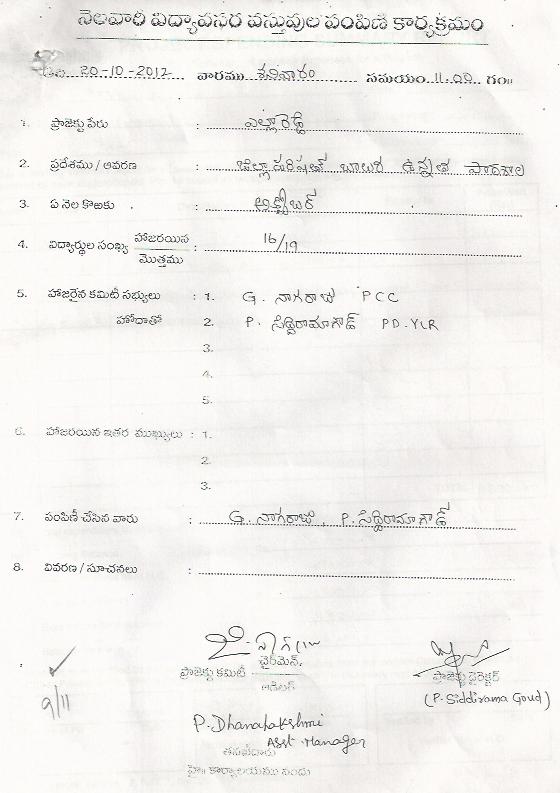 నెలవారీ విద్యావసర వస్తువుల పంపిణీ కార్యక్రమం
తేది 20-10-2012 వారము శనివారం సమయం 11.00 గం॥
1. ప్రాజెక్టు పేరు : ఎల్లారెడ్డి
2. ప్రదేశము / ఆవరణ : జిల్లా పరిషత్ బాలుర ఉన్నత పాఠశాల
3. ఏ నెల కొఱకు : అక్టోబర్
4. విద్యార్థుల సంఖ్య హాజరయిన / మొత్తము : 16/19
5. హాజరైన కమిటీ సభ్యులు : 1. G. నాగరాజు PCC
హోదాతో 2. P. సిద్దిరామాగౌడ్ PD-YLR
3.
4.
5.
6. హాజరయిన ఇతర ముఖ్యులు : 1.
2.
3.
7. పంపిణీ చేసిన వారు : G. నాగరాజు, P. సిద్దిరామాగౌడ్
8. వివరణ / సూచనలు :
చైర్‌మెన్, ప్రాజెక్టు డైరెక్టర్
ప్రాజెక్టు కమిటీ
(P. Siddirama Goud)
9/11
P. Dhanalakshmi
Asst. Manager
హై॥ కార్యాలయము నందు